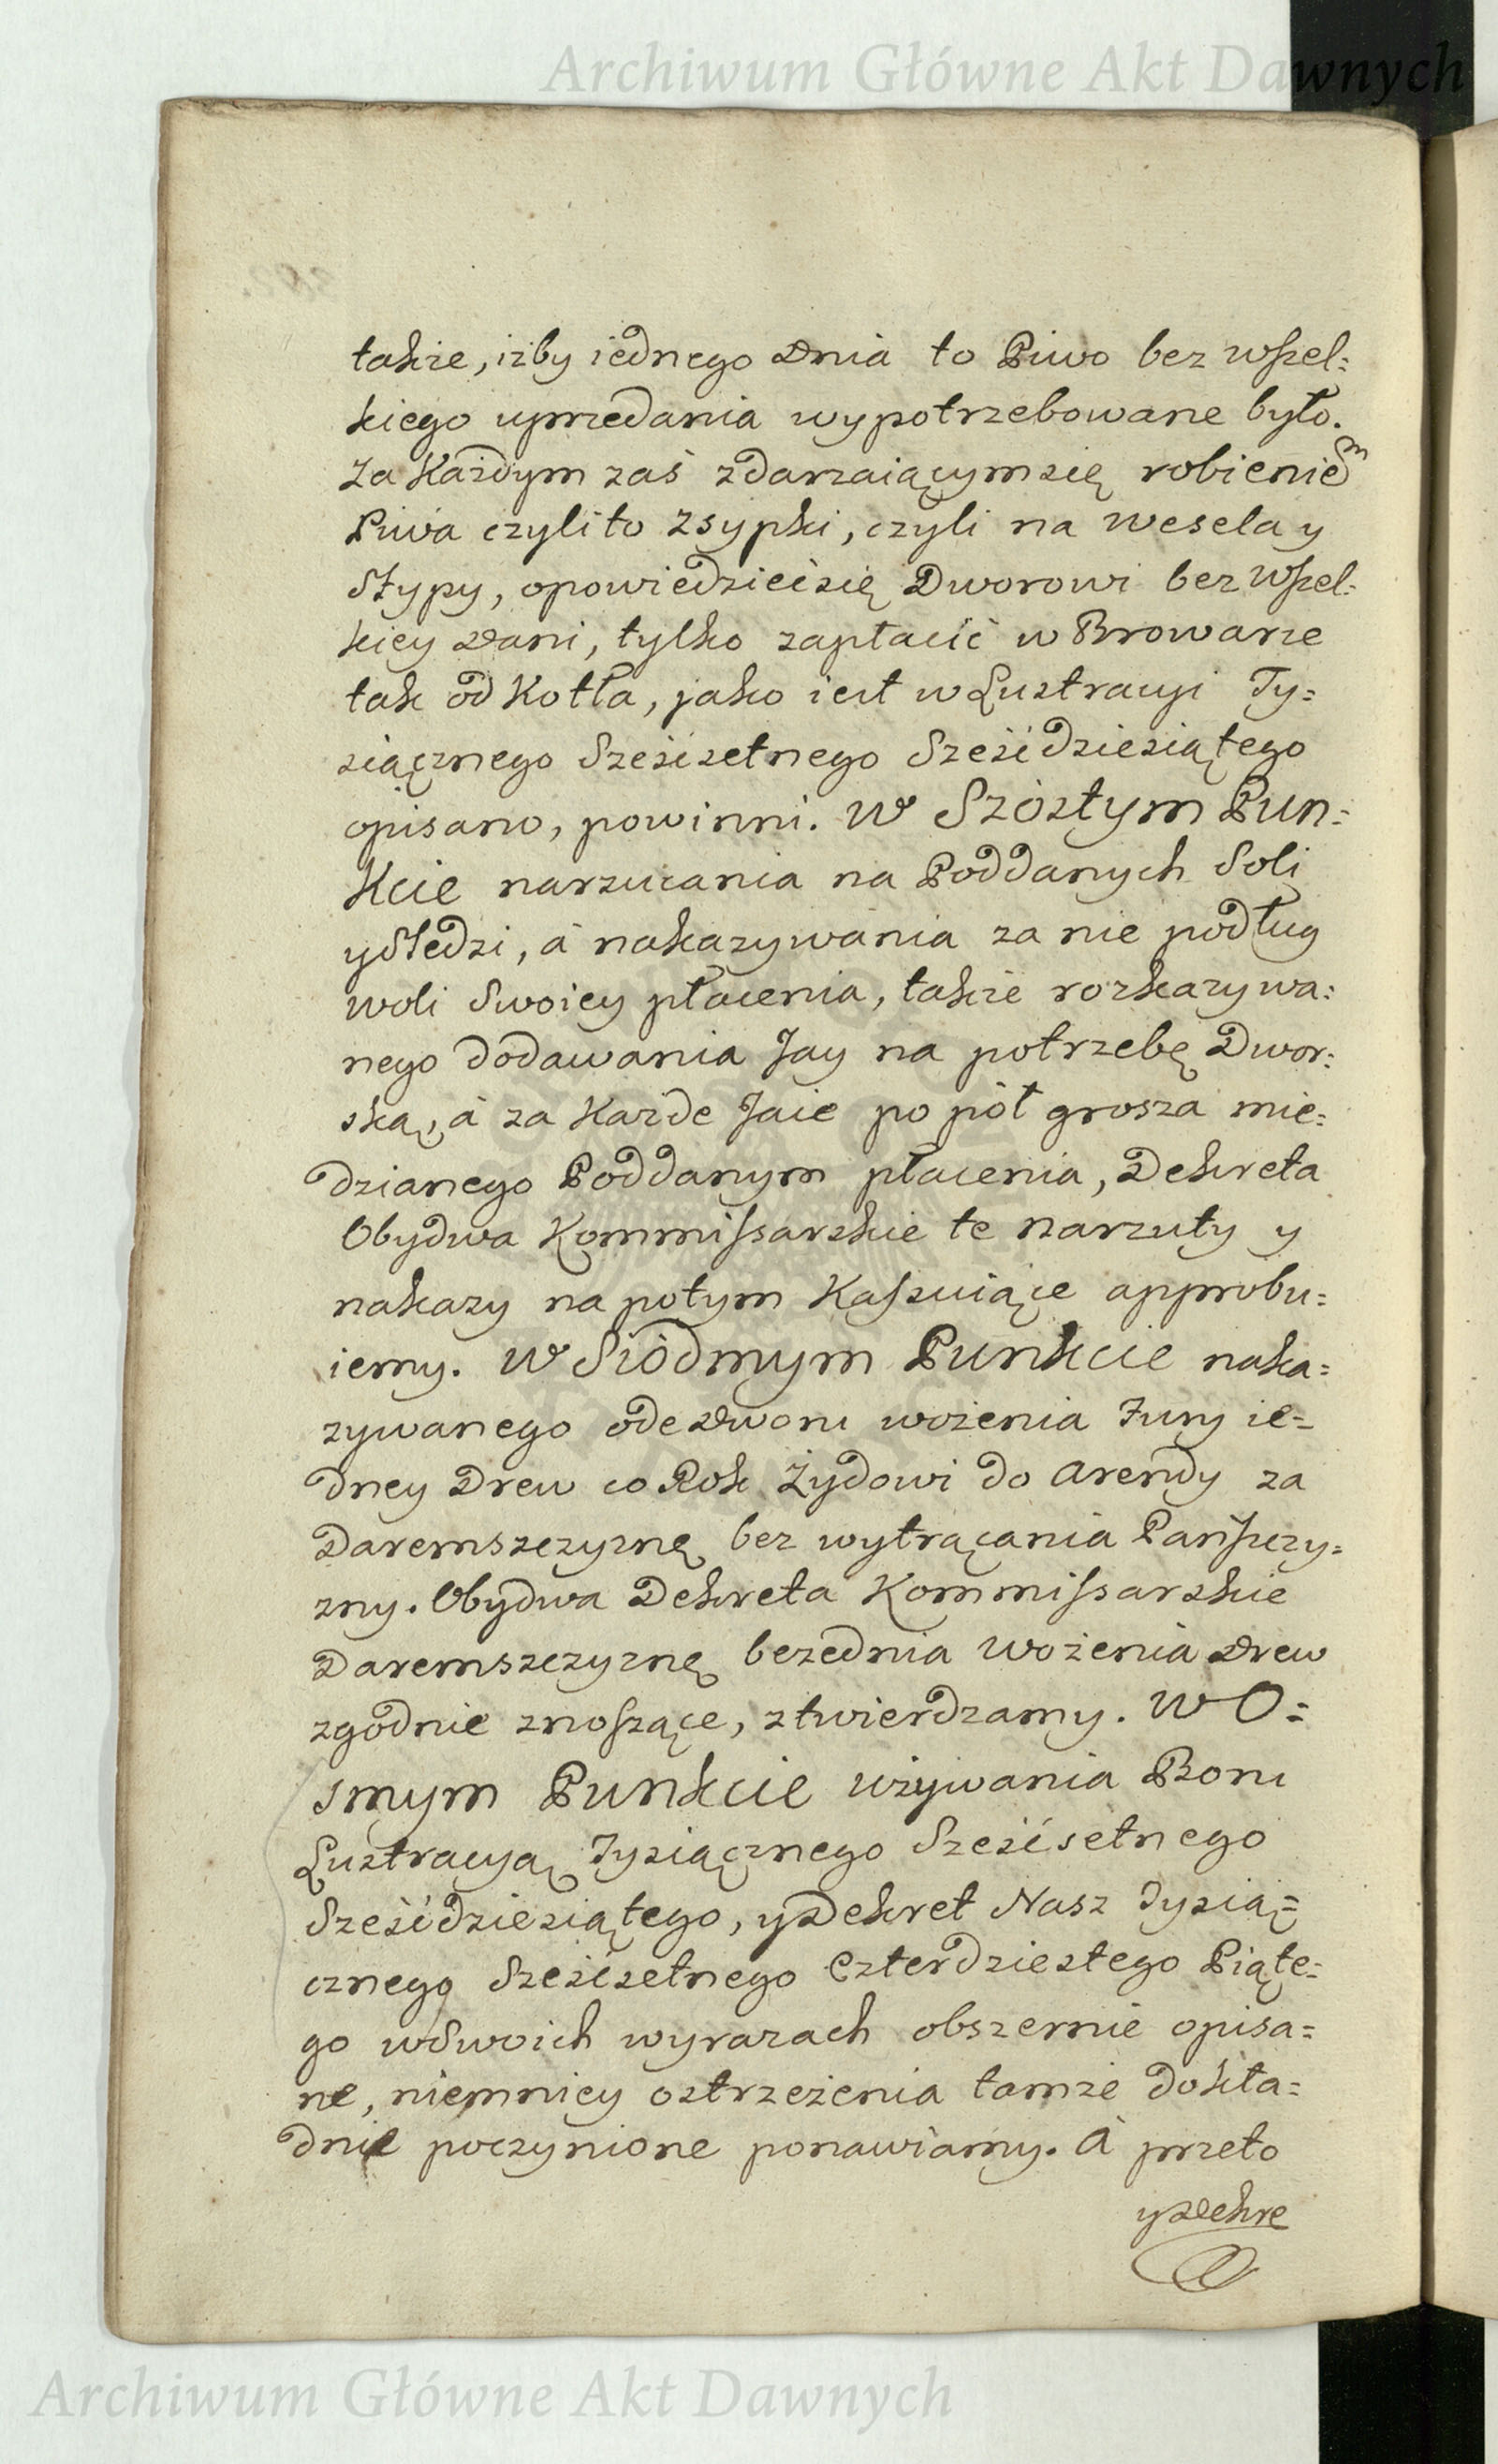 Archiwum Główne Akt Dawnych
takze, izby iednego Dnia to Piwo bez wszel=
kiego uprzedania wypotrzebowane było.
Za Każdym zaś zdarzaiącym się robienie^m
Piwa czyli to zsypki, czyli na wesela y
Stypy, opowiedzieć się Dworowi bez wszel=
kiey dani, tylko zapłacić w Browarze
tak od Kotła, jako iest w Lustracyi Ty=
siącznego Sześćsetnego Sześćdziesiątego
opisano, powinni. W Szóstym Pun=
kcie narzucania na Poddanych Soli
y Sledzi, á nakazywania za nie podług
woli Swoiey płacenia, także rozkazywa=
nego dodawania Jay na potrzebę Dwor=
ską, á za Każde Jaie po pół grosza mie=
dzianego Poddanym płacenia, Dekreta
Obydwa Kommissarskie te narzuty y
nakazy na potym Kassuiące approbu=
iemy. W Siódmym Punkcie naka=
zywanego ode dworu wożenia Fury ie=
dney Drew co Rok Żydowi do arendy za
Daremszczyznę bez wytrącania Pańszczy=
zny. Obydwa Dekreta Kommissarskie
Daremszczyznę bezednia wożenia Drew
zgodnie znoszące, ztwierdzamy. W O=
smym Punkcie używania Boru
Lustracyą Tysiącznego Sześćsetnego
Sześćdziesiątego, y Dekret Nasz Tysią=
cznego Sześćsetnego Czterdziestego Piąte=
go w Swoich wyrazach obszernie opisa=
ne, niemniey ostrzeżenia tamże dokła=
dnie poczynione ponawiamy. A przeto
y Dekre
Archiwum Główne Akt Dawnych